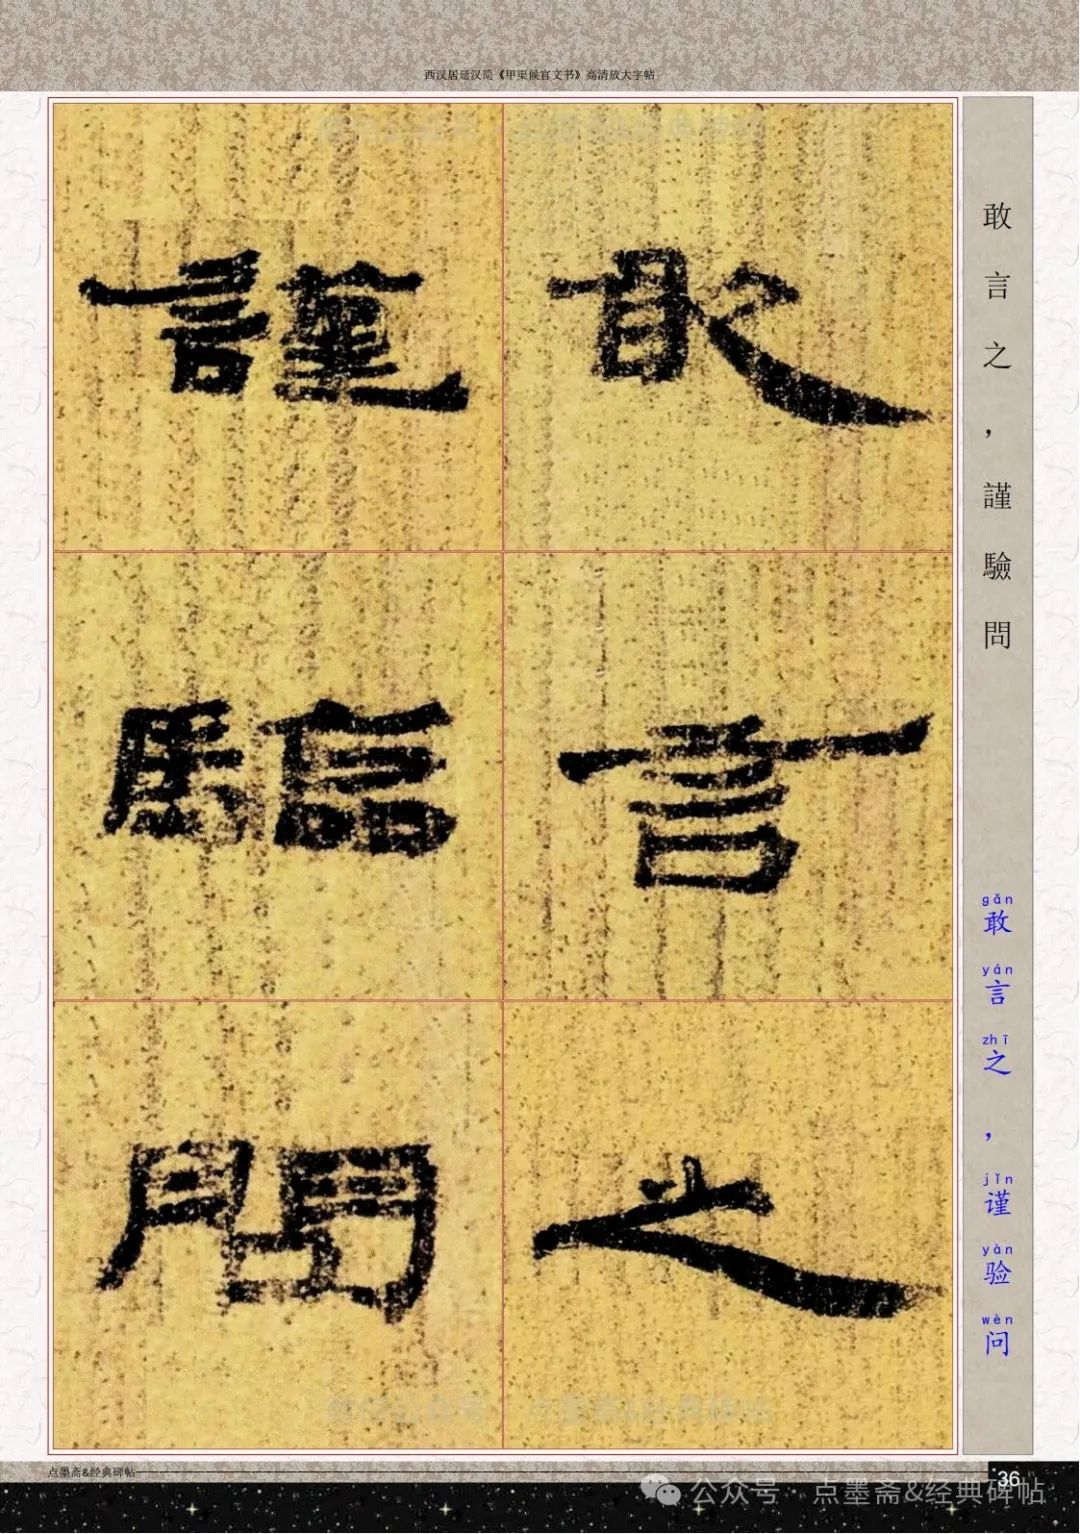 西汉居延汉简《甲渠候官文书》高清放大字帖
敢言之
謹驗問
敢言之，謹驗問
gǎn yán zhī jǐn yàn wèn
敢言之，谨验问
点墨斋&经典碑帖
36
公众号·点墨斋&经典碑帖